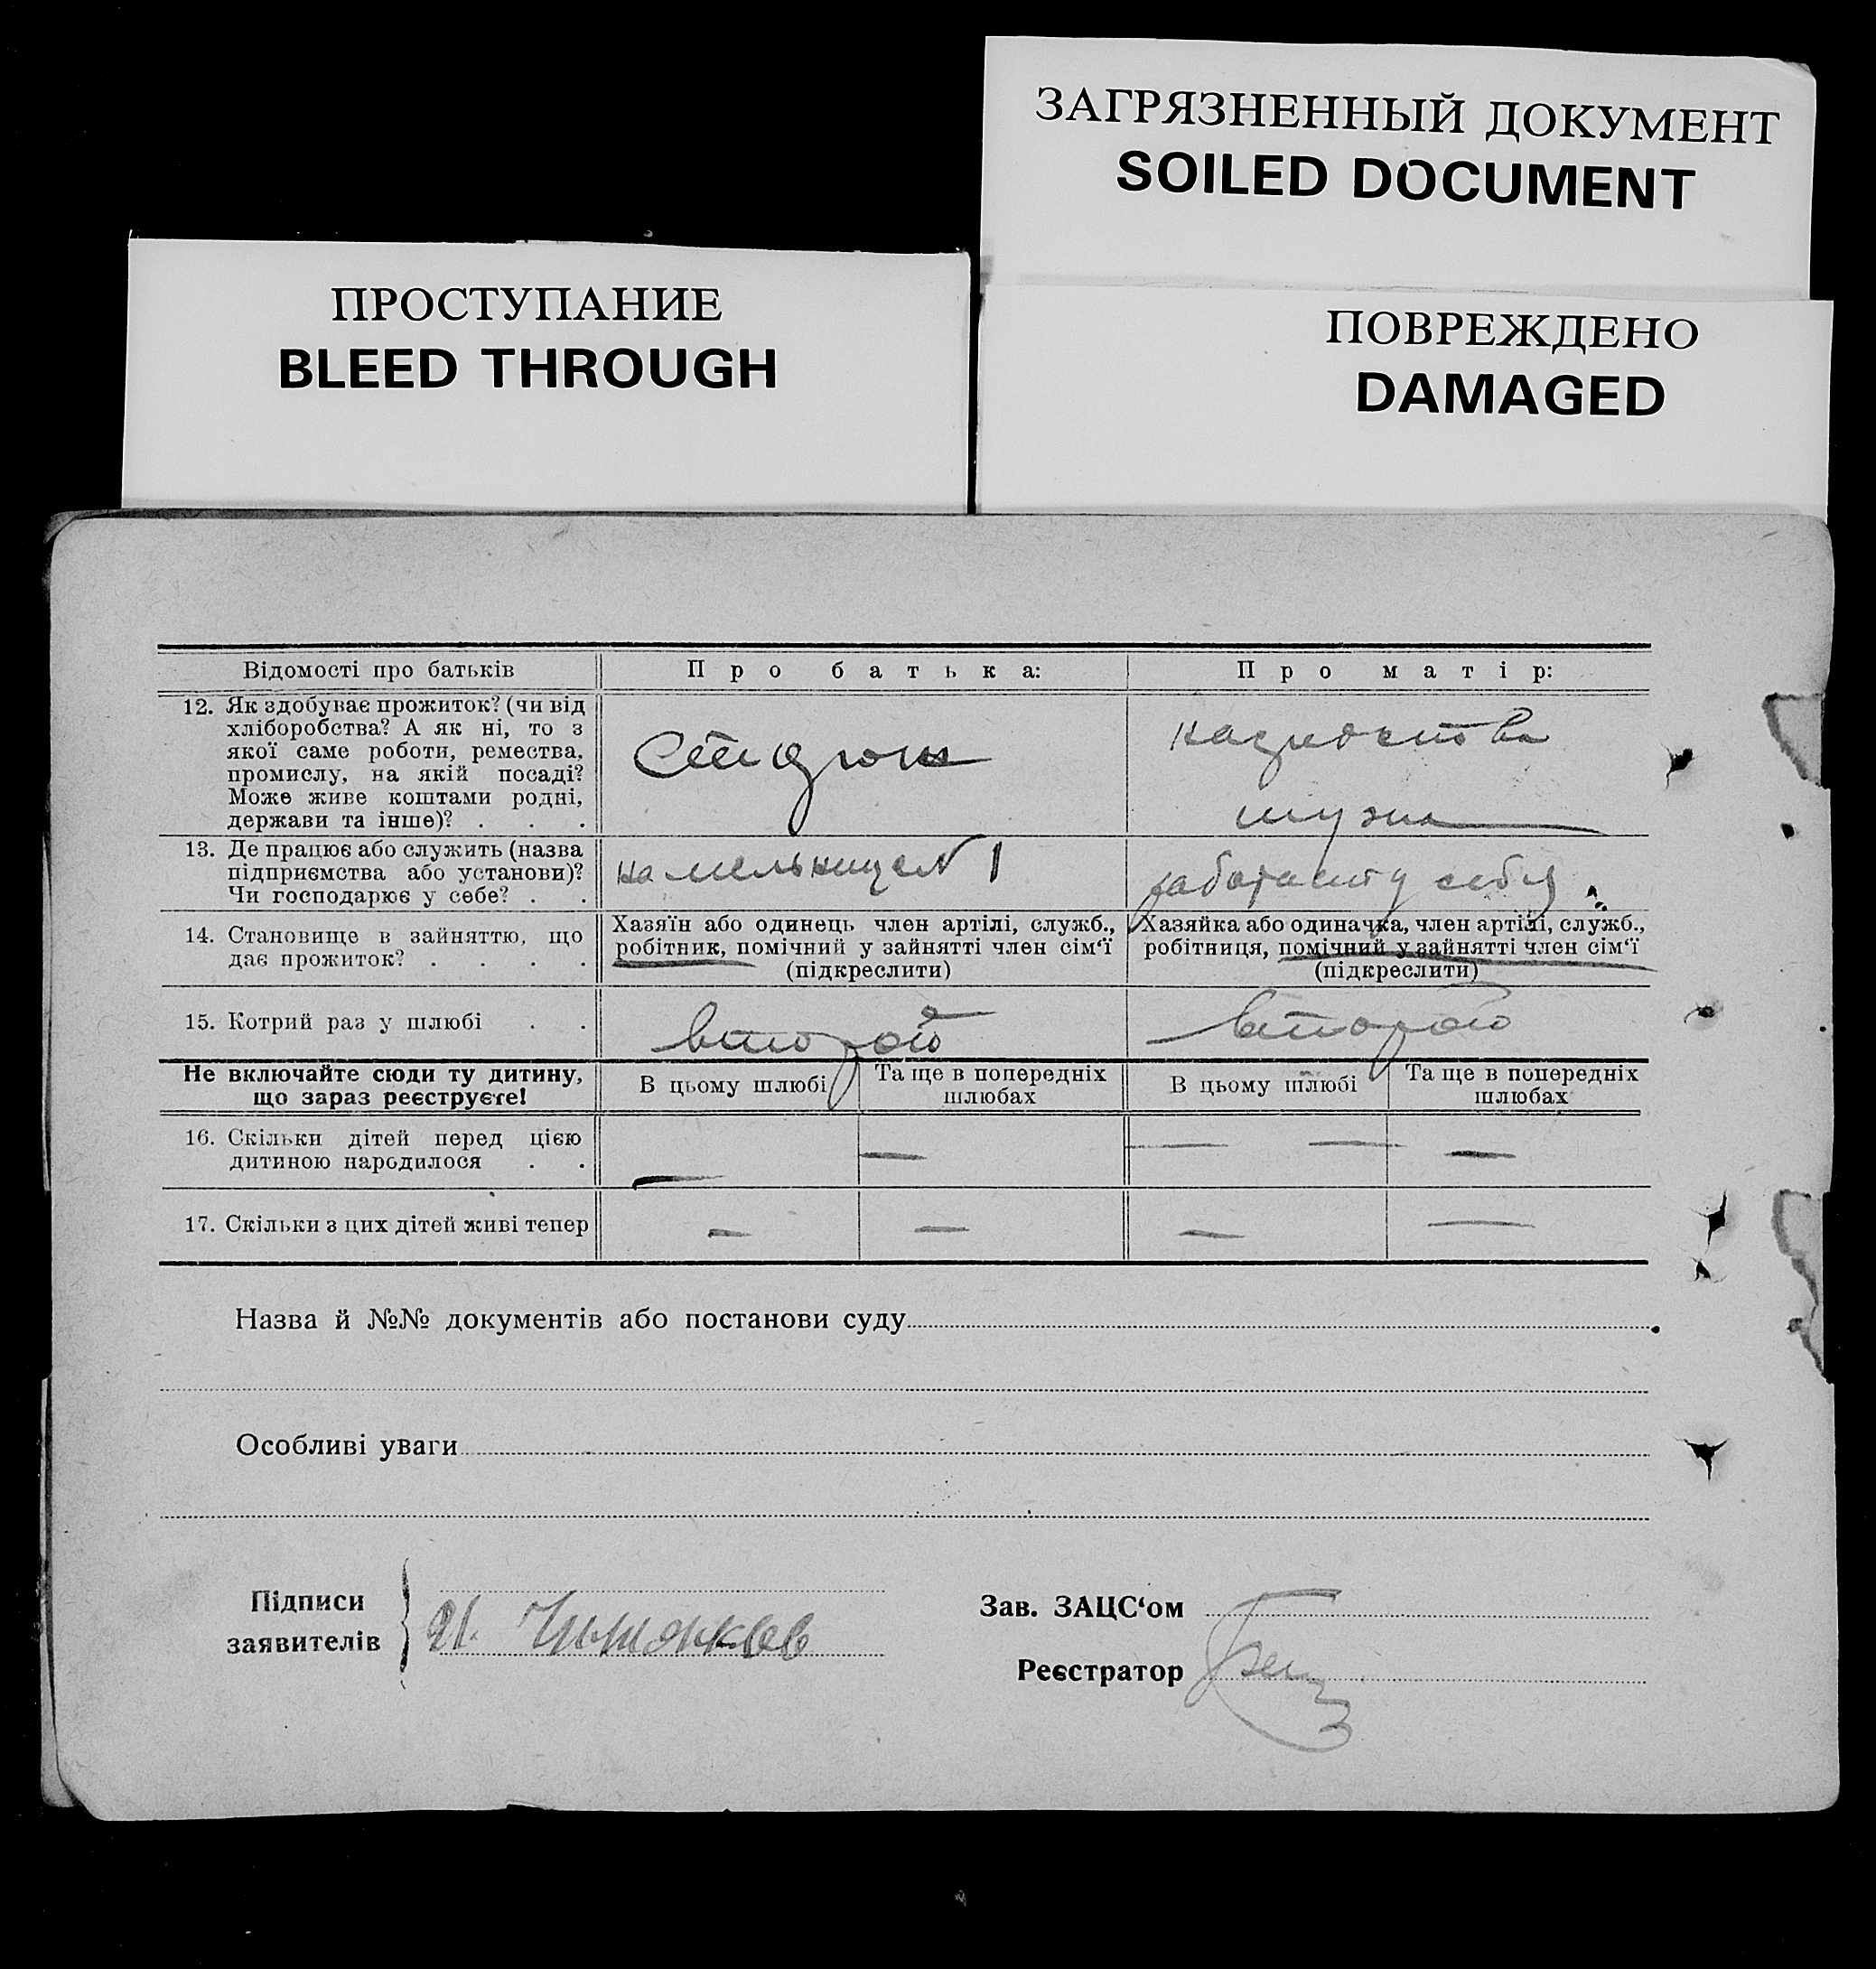 ЗАГРЯЗНЕННЫЙ ДОКУМЕНТ
SOILED DOCUMENT
ПРОСТУПАНИЕ
BLEED THROUGH
ПОВРЕЖДЕНО
DAMAGED
Відомості про батьків
Про батька:
Про матір:
12. Як здобуває прожиток? (чи від
хліборобства? А як ні, то з
якої саме роботи, ремества,
промислу, на якій посаді?
Може живе коштами родні,
держави та інше)? . . .
мужа
13. Де працює або служить (назва
підприємства або установи)?
Чи господарює у себе? . .
на мельнице N 1
работает у себя
14. Становище в зайняттю, що
дає прожиток? . . . .
Хазяїн або одинець член артілі, служб.,
робітник, помічний у зайнятті член сім‘ї
(підкреслити)
Хазяйка або одиначка, член артілі, служб.,
робітниця, помічний у зайнятті член сім‘ї
(підкреслити)
15. Котрий раз у шлюбі . .
второй
второй
Не включайте сюди ту дитину,
що зараз реєструєте!
В цьому шлюбі
Та ще в попередніх
шлюбах
В цьому шлюбі
Та ще в попередніх
шлюбах
16. Скільки дітей перед цією
дитиною народилося . .
— — — — —
17. Скільки з цих дітей живі тепер
— — — —
Назва й №№ документів або постанови суду
Особливі уваги
Підписи
заявителів
Зав. ЗАЦС‘ом
Реєстратор